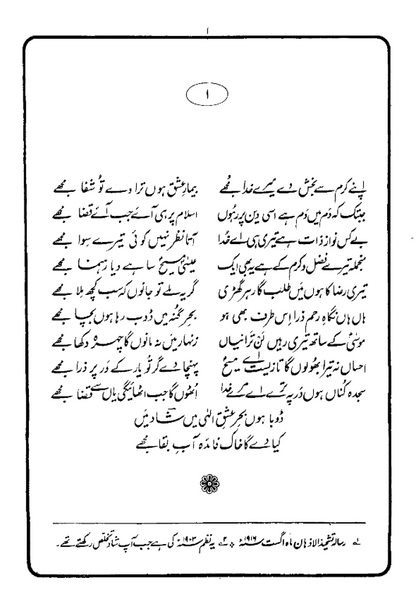 ۱
اپنے کرم سے بخش دے میرے خدا مجھے بیمارِ عشق ہوں ترا دے تو شفا مجھے
جبتک کہ دم میں دم ہے اسی دین پر رہوں اسلام پر ہی آئے جب آئے قضا مجھے
بے کس نواز ذات ہے تیری ہی اے خدا آتا نظر نہیں کوئی تیرے سوا مجھے
منجملہ تیرے فضل و کرم کے ہے یہ بھی ایک عیسیٰ مسیح سا ہے دیا رہنما مجھے
تیری رضا کا ہوں میں طلب گار ہر گھڑی گر یہ ملے تو جانوں کہ سب کچھ ملا مجھے
ہاں ہاں نگاہِ رحم ذرا اس طرف بھی ہو بحرِ گنہ میں ڈوب رہا ہوں بچا مجھے
موسیٰ کے ساتھ تیری رہیں لن ترانیاں زنہار میں نہ مانوں گا چہرہ دکھا مجھے
احساں نہ تیرا بھولوں گا تا زیست اے مسیح پہنچا دے گر تو یار کے در پر ذرا مجھے
سجدہ کناں ہوں در پہ ترے اے مرے خدا اٹھوں گا جب اٹھائیگی یاں سے قضا مجھے
ڈوبا ہوں بحرِ عشقِ الٰہی میں شاد میں
کیا دے گا خاک فائدہ آبِ بقا مجھے
۱؎ رسالہ تشحیذ الاذہان ماہ اگست ۱۹۱۶ء ۲؎ یہ نظم ۱۹۰۳ء کی ہے جب آپ شاد تخلص رکھتے تھے۔